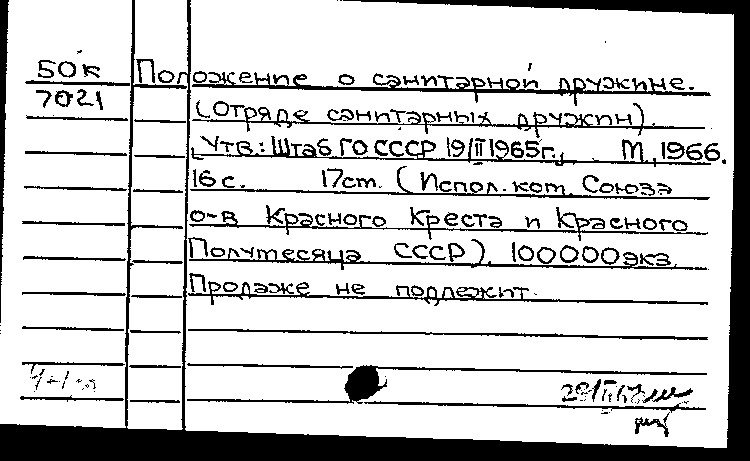 БОК Положение о санитарной дружине.
7021 (Отряде санитарных дружин).
[Утв: Штаб ГО СССР 19/II 1965г.] М., 1966.
16 с. 17 cm. (Испол. ком. Союза
о-в Красного Креста и Красного
Полумесяца СССР). 100000 экз.
Продаже не подлежит.